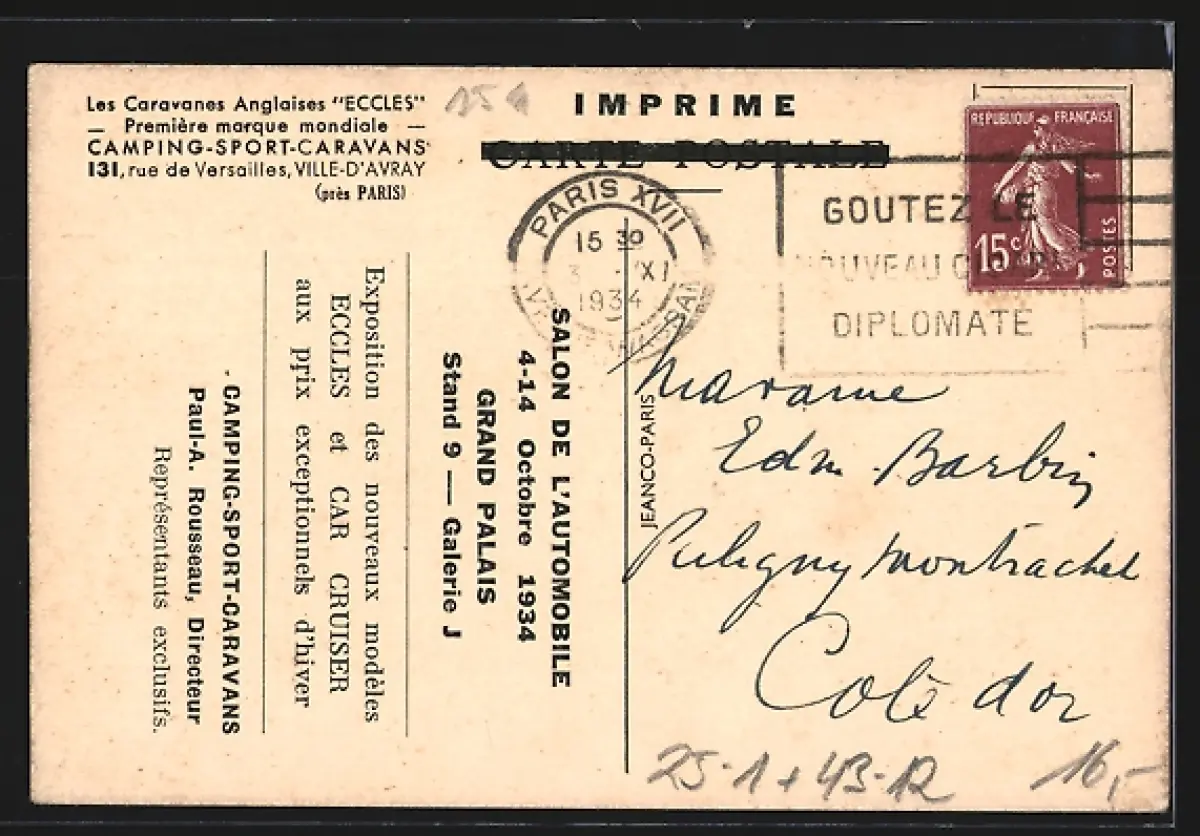 Les Caravanes Anglaises "ECCLES"
— Première marque mondiale —
CAMPING-SPORT-CARAVANS
131, rue de Versailles, VILLE-D'AVRAY
(près PARIS)
IMPRIME
CARTE POSTALE
REPUBLIQUE FRANÇAISE
15c
POSTES
PARIS XVII
15 30
3 - XI
1934
GOUTEZ LE
NOUVEAU
DIPLOMATE
SALON DE L'AUTOMOBILE
4-14 Octobre 1934
GRAND PALAIS
Stand 9 — Galerie J
Exposition des nouveaux modèles
ECCLES et CAR CRUISER
aux prix exceptionnels d'hiver
CAMPING-SPORT-CARAVANS
Paul-A. Rousseau, Directeur
Représentants exclusifs.
JEANCO-PARIS
Madame
Edm. Barbin
Puligny Montrachet
Côte d'or
25-1 + 43-12
16,-